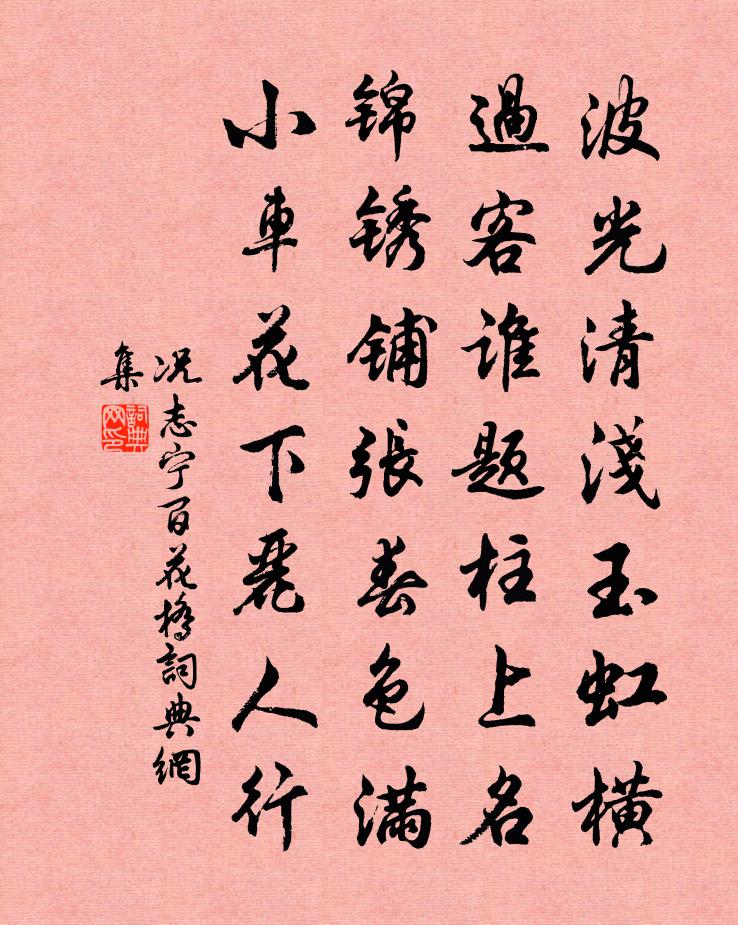 波光清淺玉虹橫
過客誰題柱上名
锦锈铺張春色滿
小車花下麗人行
况志宁百花橋詞典網
集
詞典网印